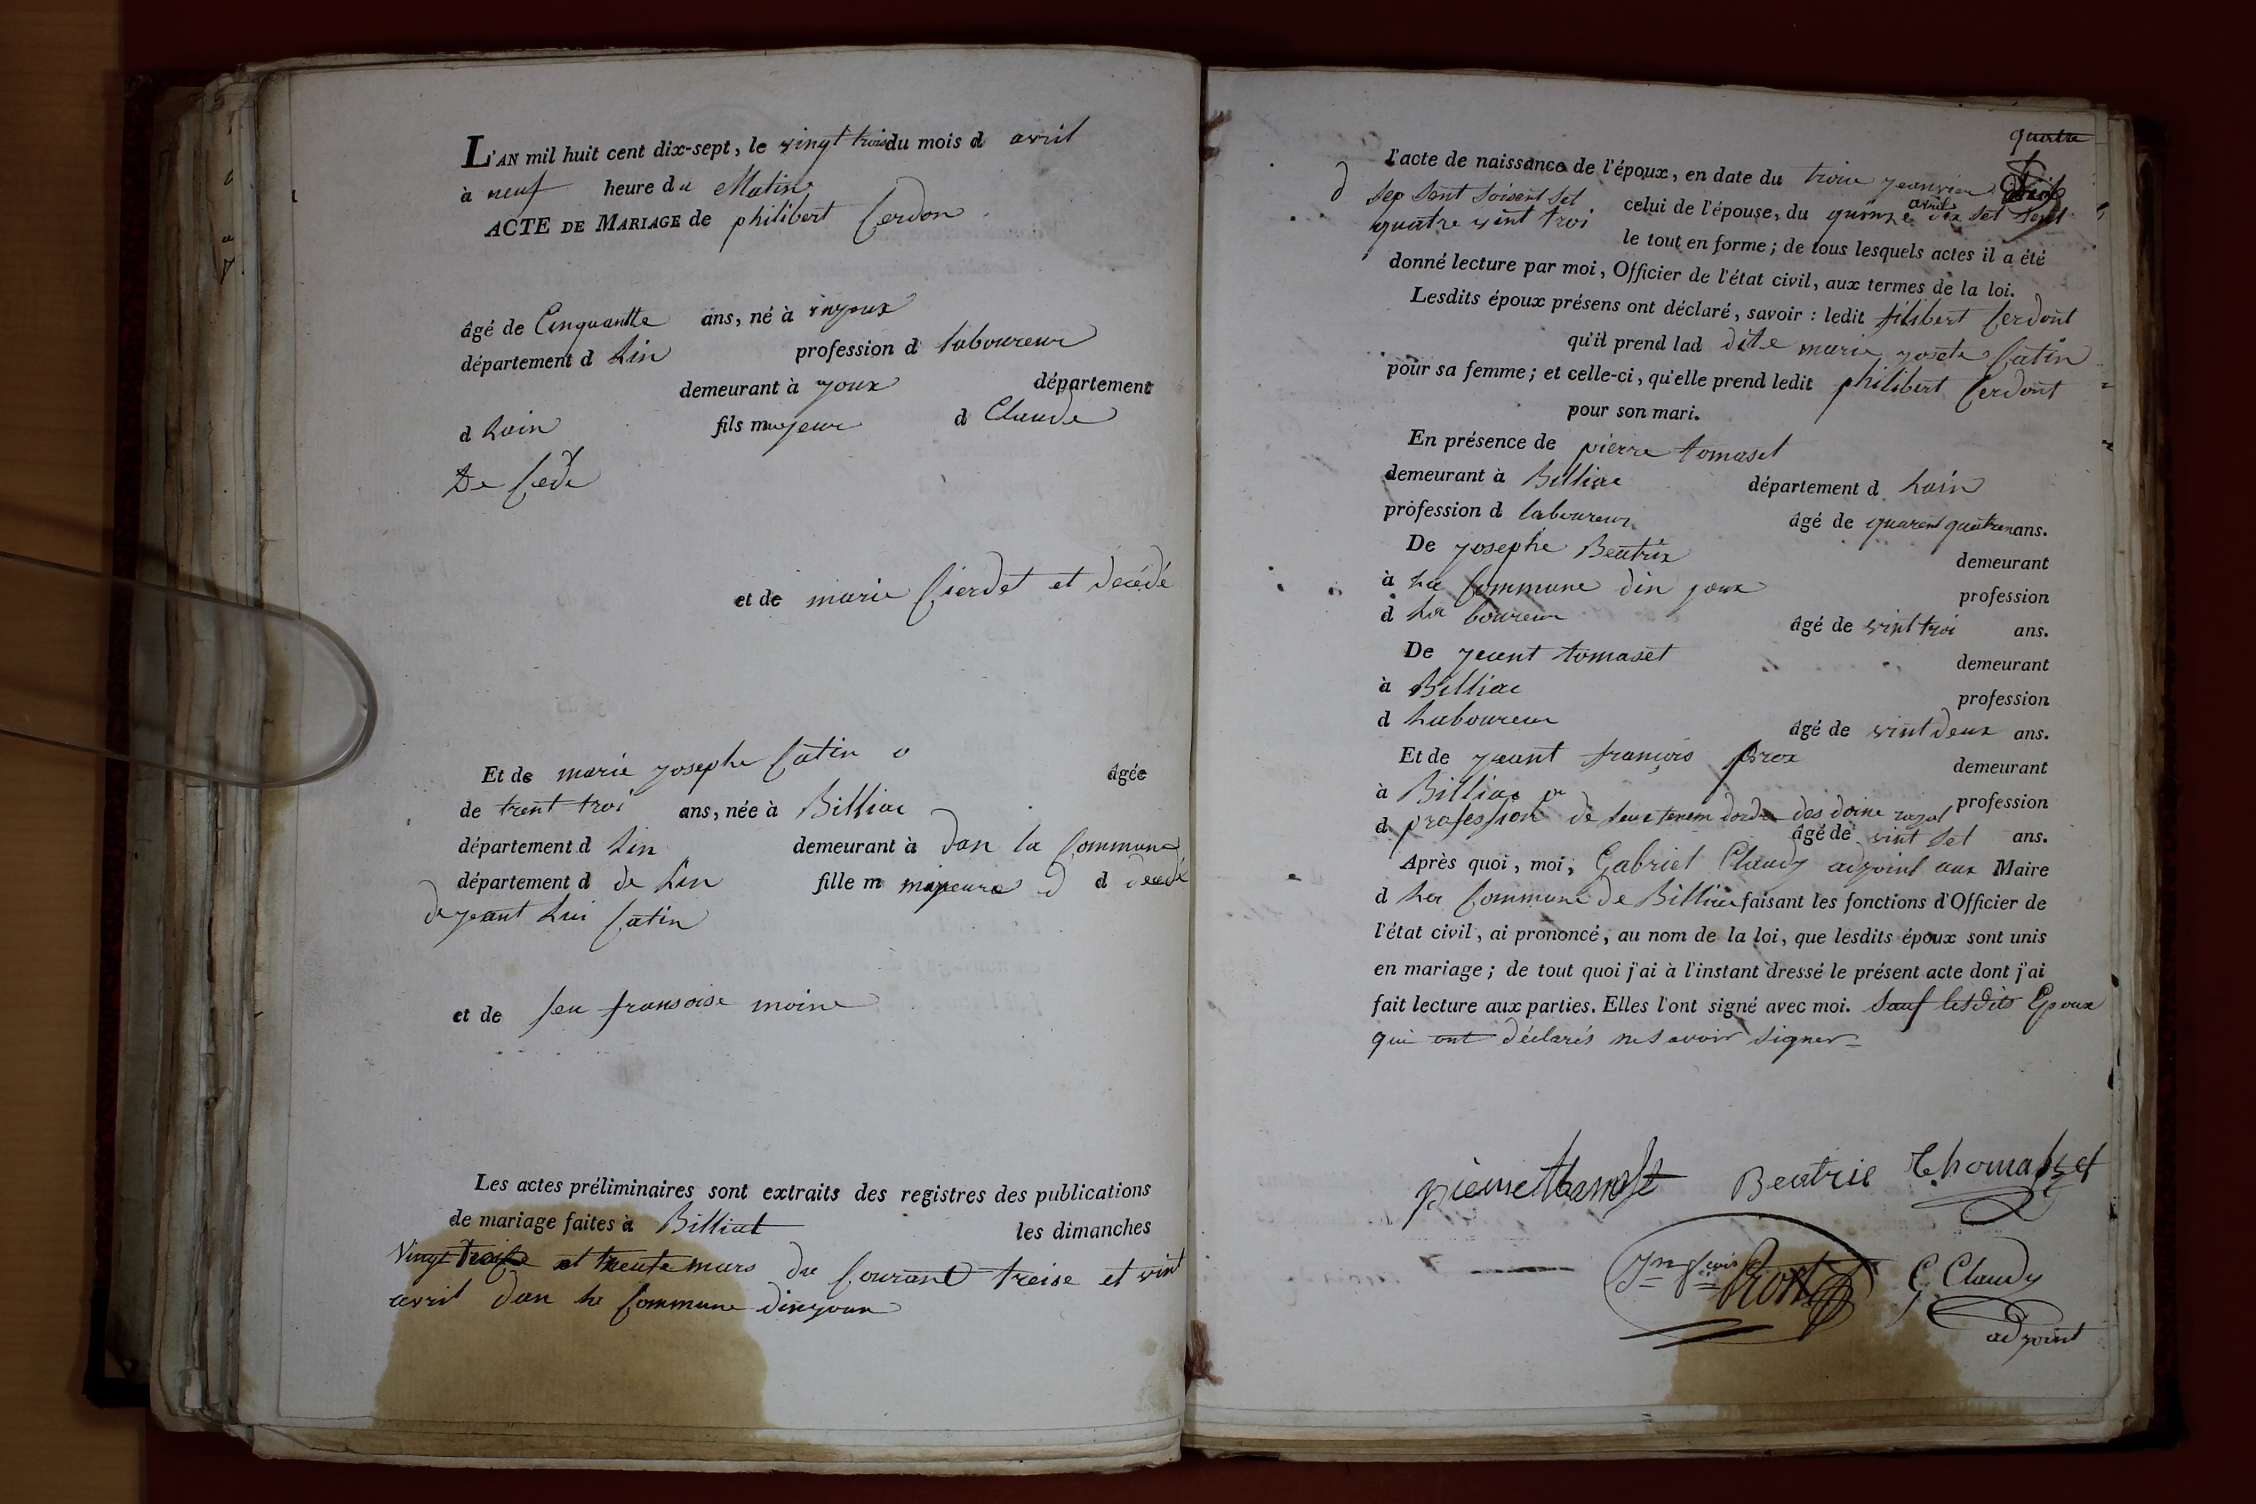 L'AN mil huit cent dix-sept, le vingt trois du mois d avril
à neuf heure du Matin
ACTE DE MARIAGE de philibert Cerdon
âgé de Cinquantte ans, né à injoux
département d Lin profession d laboureur
demeurant à joux département
d Lain fils majeur d Claude
De Cede
et de marie Cierdet et decédé
Et de marie josephe Catin
âgée
de trent troi ans, née à Billiac
département d Lin demeurant à dan la Commune
département d de Lin fille m majeure d decedé
de jeant Lui Catin
et de feu fransoise moine
Les actes préliminaires sont extraits des registres des publications
de mariage faites à Billiat les dimanches
Vingt trois et trente mars du Courant treise et vint
avril dan la Commune dinjoux
quatre
l'acte de naissance de l'époux, en date du troise jeanvier
sep sent soisent set celui de l'épouse, du quinze avril dix set sent
quatre vint troi le tout en forme; de tous lesquels actes il a été
donné lecture par moi, Officier de l'état civil, aux termes de la loi.
Lesdits époux présens ont déclaré, savoir : ledit filibert Cerdont
qu'il prend lad dite marie josete Catin
pour sa femme; et celle-ci, qu'elle prend ledit philibert Cerdont
pour son mari.
En présence de pierre tomaset
demeurant à Billiac département d Lain
profession d laboureur âgé de quarent quatre ans.
De josephe Beatrix demeurant
à La Commune din joux profession
d La boureur âgé de vint troi ans.
De jeant tomaset demeurant
à Billiac profession
d Laboureur âgé de vint deux ans.
Et de jeant françois prox demeurant
à Billiac profession
d profession de des doine royal
âgé de vint set ans.
Après quoi, moi, Gabriel Claudy adjoint aux Maire
d La Commune de Billiac faisant les fonctions d'Officier de
l'état civil, ai prononcé, au nom de la loi, que lesdits époux sont unis
en mariage; de tout quoi j'ai à l'instant dressé le présent acte dont j'ai
fait lecture aux parties. Elles l'ont signé avec moi. Sauf lesdits Epoux
qui ont déclarés ne savoir signer
Beatrie Thomasset
G Claudy
adjoint